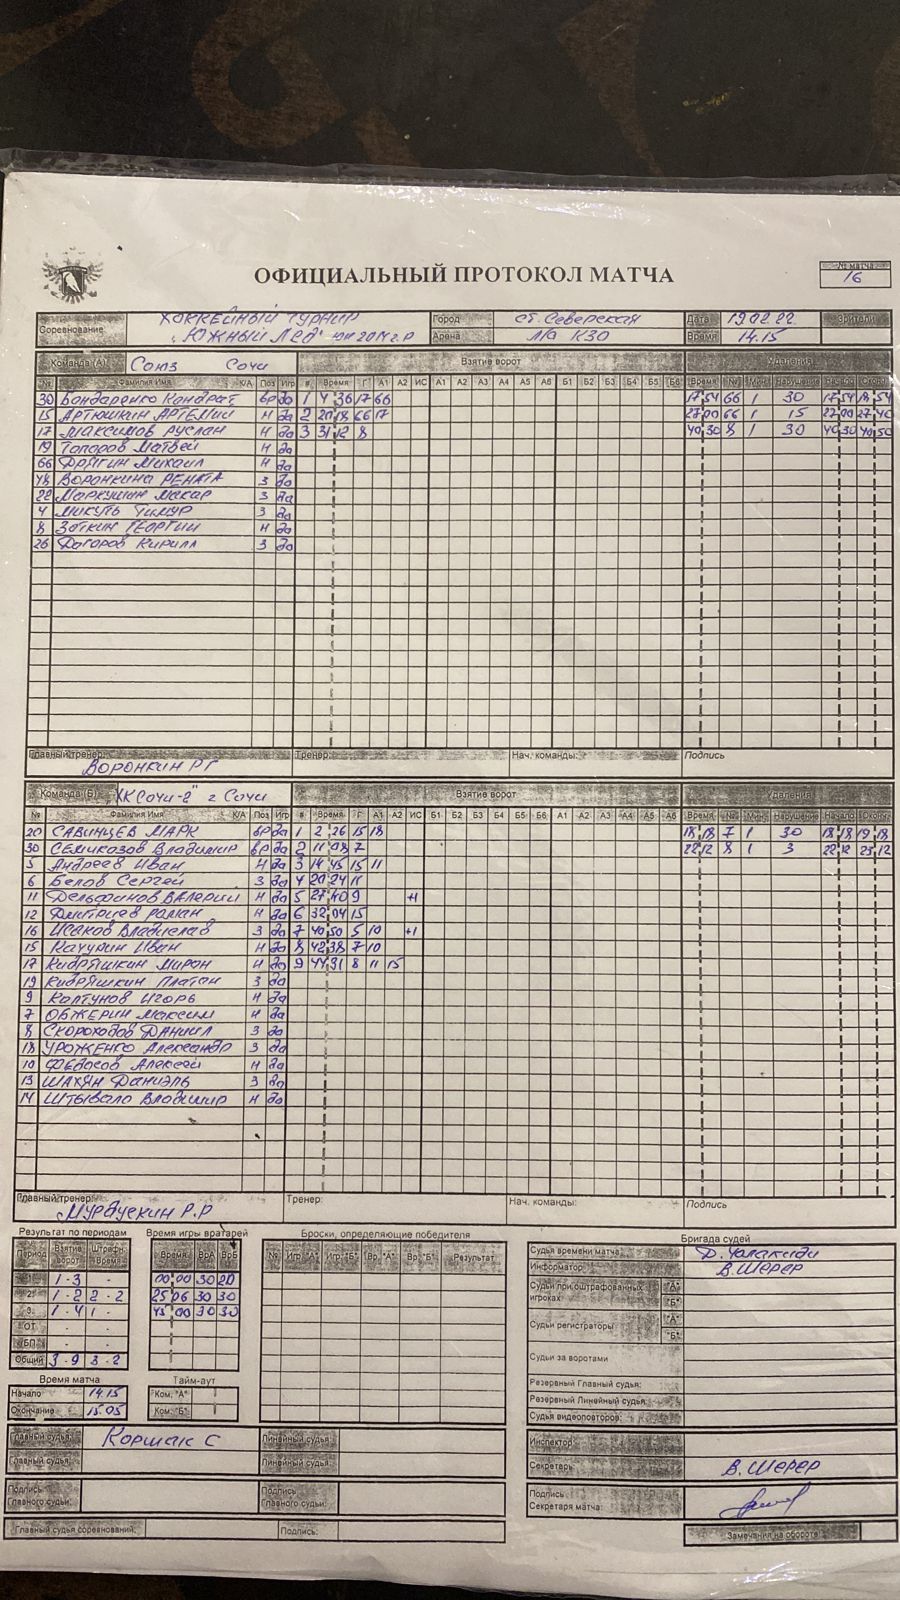 ОФИЦИАЛЬНЫЙ ПРОТОКОЛ МАТЧА
№ матча
16
Соревнование ХОККЕЙНЫЙ ТУРНИР "ЮЖНЫЙ ЛЁД" юн 2014 г.р Город ст. Северская Дата 19.02.22 Зрители
Арена ЛА КЗО Время 14.15
Команда (А) Союз Сочи Взятие ворот Удаления
№ Фамилия Имя К/А Поз Игр # Время Г А1 А2 ИС А1 А2 А3 А4 А5 А6 Б1 Б2 Б3 Б4 Б5 Б6 Время № Мин Нарушение Начало Оконч.
30 Бондаренко Кондрат вр да 1 4 36 17 66 17 54 66 1 30 17 54 18 54
15 АРТЮШКИН АРТЕМИЙ Н да 2 20 18 66 17 27 00 66 1 15 27 00 27 40
17 Максимов Руслан Н да 3 31 12 8 40 30 8 1 30 40 30 40 50
19 Топоров Матвей Н да
66 ФРЯГИН МИХАИЛ Н да
48 ВОРОНКИНА РЕНАТА З да
22 Маркушин Макар З да
4 МИКУТЬ ТИМУР З да
8 ЗОТКИН ГЕОРГИЙ Н да
26 Догоров Кирилл З да
Главный тренер: Тренер: Нач. команды: Подпись
ВОРОНКИН РГ
Команда (Б) "ХК Сочи-2" г Сочи Взятие ворот Удаления
№ Фамилия Имя К/А Поз Игр # Время Г А1 А2 ИС Б1 Б2 Б3 Б4 Б5 Б6 А1 А2 А3 А4 А5 А6 Время № Мин Нарушение Начало Оконч.
20 САВИНЦЕВ МАРК вр да 1 2 26 15 18 18 18 7 1 30 18 18 19 18
30 СЕМИКОЗОВ Владимир вр да 2 11 08 7 22 12 8 1 3 22 12 23 12
5 Андреев Иван Н да 3 14 45 15 11
6 Белов Сергей З да 4 20 24 11
11 Дельфинов ВАЛЕРИЙ Н да 5 27 40 9 +1
12 Дмитриев Роман Н да 6 32 04 15
16 Исаков Владислав З да 7 40 50 5 10 +1
15 Качурин Иван Н да 8 42 38 7 10
17 Кибряшкин Мирон Н да 9 44 31 8 11 15
19 Кибряшкин Платон З да
9 Колтунов Игорь Н да
7 ОБЖЕРИН Максим Н да
8 СКОРОХОДОВ ДАНИИЛ З да
18 УРОЖЕНКО Александр З да
10 ФЕДОСОВ Алексей Н да
13 ШАХЯН ДАНИЭЛЬ З да
14 Штывало Владимир Н да
Главный тренер: Тренер: Нач. команды: Подпись
Мурдускин Р.Р
Результат по периодам Время игры вратарей Броски, определяющие победителя Бригада судей
Период Взятие ворот Штрафн. время Время ВрА ВрБ № Игр "А" Игр "Б" Вр. "А" Вр. "Б" Результат
1 1 - 3 - 00 00 30 20
2 1 - 2 2 - 2 25 06 30 30
3 1 - 4 1 - 45 00 30 30
ОТ -
БП -
Общий 3 - 9 3 - 2
Судья времени матча
Информатор: В. Шерер
Судьи при оштрафованных игроках "А" "Б"
Судьи регистраторы "А" "Б"
Судьи за воротами
Резервный Главный судья:
Резервный Линейный судья:
Судья видеоповторов:
Время матча Тайм-аут
Начало 14.15 Ком. "А"
Окончание 15.05 Ком. "Б"
Главный судья: Коршак С Линейный судья: Инспектор:
Главный судья: Линейный судья: Секретарь В. Шерер
Подпись Главного судьи: Подпись Главного судьи: Подпись Секретаря матча:
Главный судья соревнований: Подпись: Замечания на обороте